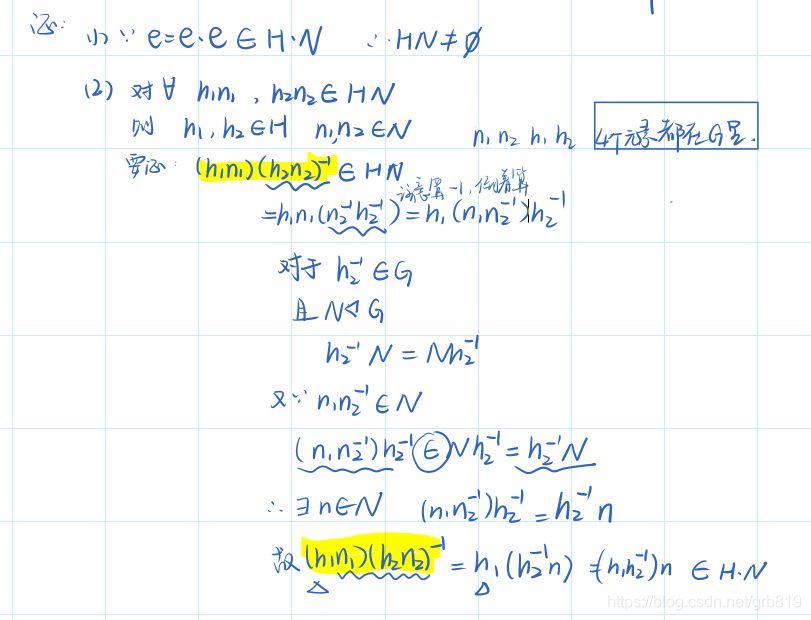 证: (1) ∵ e=e·e ∈ H·N ∴ HN≠∅
(2) 对∀ h₁n₁ , h₂n₂∈HN
则 h₁,h₂∈H n₁,n₂∈N n₁ n₂ h₁ h₂ 4个元素都在G里.
要证: (h₁n₁)(h₂n₂)⁻¹ ∈ HN
注意算-1,倒着算
=h₁n₁(n₂⁻¹h₂⁻¹)=h₁(n₁n₂⁻¹)h₂⁻¹
对于 h₂⁻¹ ∈G
且 N⊲G
h₂⁻¹N = Nh₂⁻¹
又∵ n₁n₂⁻¹∈N
(n₁n₂⁻¹)h₂⁻¹∈Nh₂⁻¹=h₂⁻¹N
∴ ∃n∈N (n₁n₂⁻¹)h₂⁻¹=h₂⁻¹n
故 (h₁n₁)(h₂n₂)⁻¹ = h₁(h₂⁻¹n) =(h₁h₂⁻¹)n ∈H·N
https://blog.csdn.net/grb819